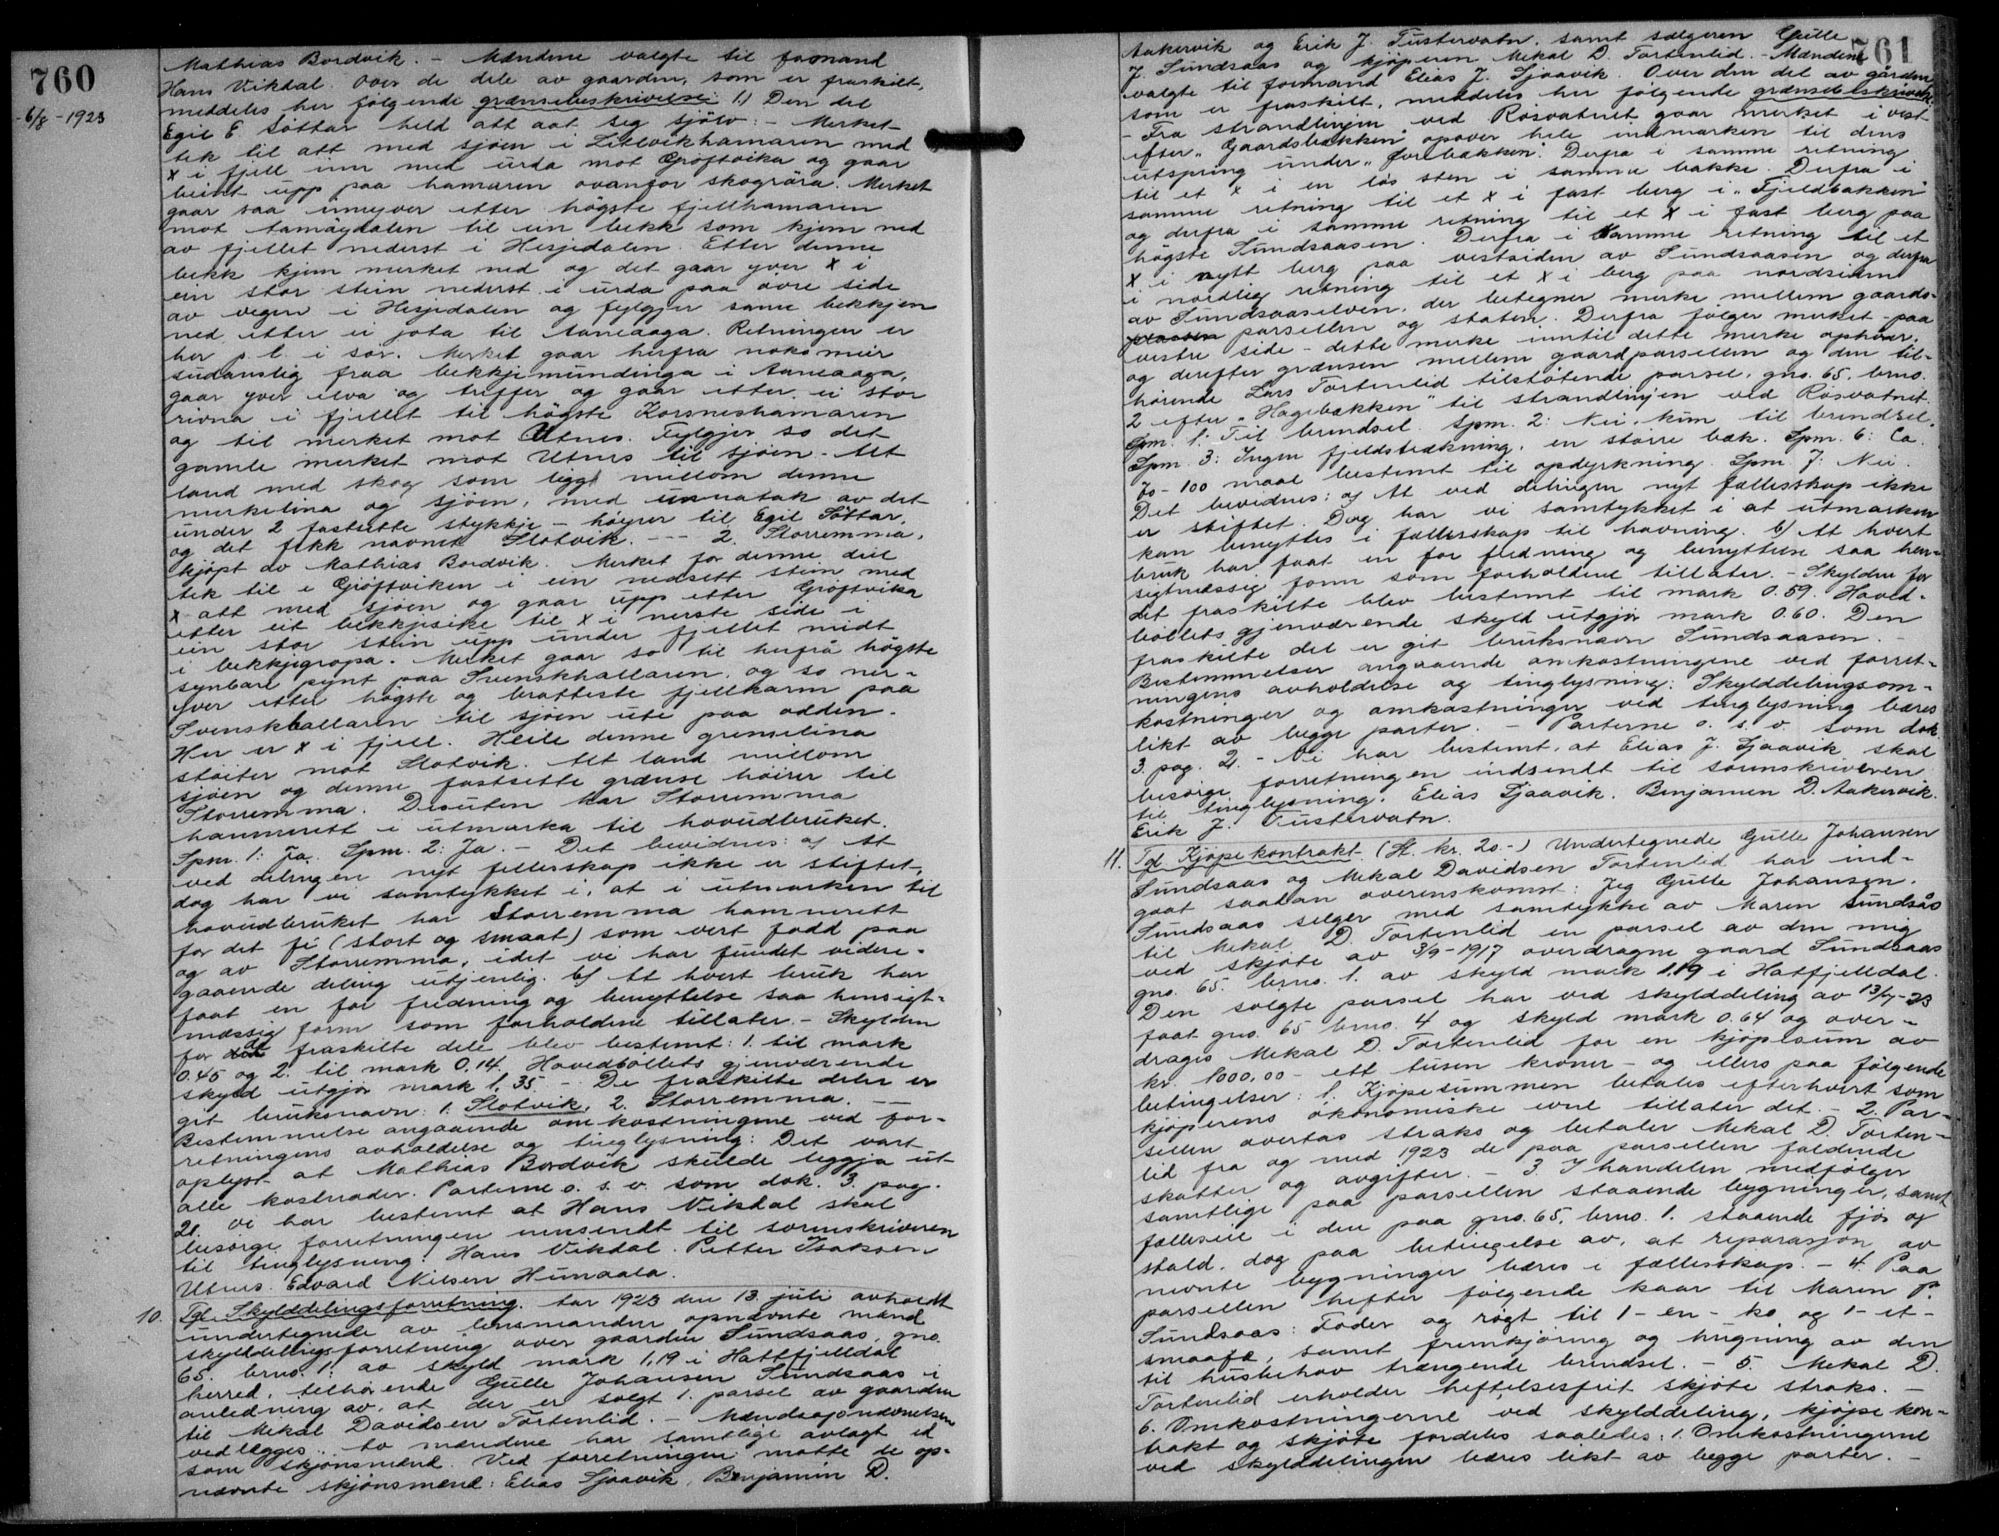 760
6/8 - 1923
Mathias Bordvik. - Mændene valgte til formand
Hans Vikdal. Over de dele av gaarden, som er fraskilt,
meddeles her følgende grænsebeskrivelse: 1.) Den del
Egil E Søttar held att aat seg sjølv: - Merket
tek til att med sjøen i Litlvikhamaren med
x i fjell inn med urda mot Grøftvika og gaar
beint upp paa hamaren ovanfor skograra. Merket
gaar saa innejver etter høgste fjellhamaren
mot Aamøydalen til ein bekk som kjem ned
av fjellet nederst i Hesjedalen. Etter denne
bekk kjem merket ned og det gaar yver x i
ein stor stein nederst i urda paa øvre side
av vegen i Hesjedalen og fylgjer same bekkjen
ned etter ei jota til Aaneaaga. Retningen er
her p. l. i sør. Merket gaar herfra noko meir
sudauslig fraa bekkjemundinga i Aaneaaga,
gaar yver elva og treffer og gaar etter ei stor
rivna i fjellet til høgste Korsneshamaren
og til merket mot Utnes. Fylgjer so det
gamle merket mot Utnes til sjøen. Alt
land med skog som ligg millom denne
merkelina og sjøen, med unnatak av det
under 2 fastsette stykkje - høyrer til Egil Søttar,
og det fekk navnet Slotvik. --- 2. Storremma,
kjøpt av Mathias Bordvik. Merket for denne deil
tek til i Grøftviken i ein nedsett stein med
x att med sjøen og gaar upp etter Grøftvika
etter eit bekkjesike til x i nerste side i
ein stor stein upp under fjellet midt
i bekkjegropa. Merket gaar so til herfrå høgste
synbare pynt paa Svenskhallaren, og so ner-
yver etter høgste og bratteste fjellkarm paa
Svenskhallaren til sjøen ute paa odden.
Her er x i fjell. Heile denne grenselina
støiter mot Slotvik. Alt land millom
sjøen og denne fastsette grænse høirer til
Storremma. Desuten har Storremma
hamnerett i utmarka til hovudbruket.
Spm. 1: Ja. Spm. 2: Ja. - Det bevidnes: a) At
ved delingen nyt fellerskap ikke er stiftet,
dog har vi samtykket i, at i utmarken til
hovudbruket har Storremma hamnerett
for det fe (stort og smaat) som vert fødd paa
og av Storremma, idet vi har fundet videre-
gaaende deling utjenlig. b) At hvert bruk har
faat en for fredning og benyttelse saa hensigt-
mæssig form som forholdene tillater. - Skylden
for de fraskilte dele blev bestemt: 1. til mark
0.45 og 2. til mark 0.14. Hovedbøllets gjenværende
skyld utgjør mark 1,35 - De fraskilte deler er
git bruksnavn: 1. Slotvik, 2. Storremma. --
Bestemmelse angaaende omkostningene ved for-
retningens avholdelse og tinglysning: Det vart
oplyst at Mathias Bordvik skulde leggja ut
alle kostnader. Parterne o. s. v. som dok. 3. pag.
21. vi har bestemt at Hans Vikdal skal
besørge forretningen innsendt til sorenskriveren
til tinglysning. Hans Vikdal. Petter Isaksen
Utnes. Edvard Nilsen Hunaala.
10. Tgl. Skylddelingsforretning. Aar 1923 den 13. juli avholdt
undertegnede av lensmanden opnævnte mænd
skylddelingsforretning over gaarden Sundsaas, gno.
65. brno. 1. av skyld mark 1,19 i Hattfjelldal
herred, tilhørende Gulle Johansen Sundsaas i
anledning av, at der er solgt 1. parsel av gaarden
til Mekal Davidsen Tortenlid. - Mændsopnævnelsen
vedlægges. Av mændene har samtlige avlagt ed
som skjønsmænd. Ved forretningen møtte de op-
nævnte skjønsmænd: Elias Sjaavik, Benjamin D.
761
Aakervik og Erik J. Tustervatn, samt sælgeren Gulle
J. Sundsaas og kjøperen Mekal D. Tortenlid. - Mændene
valgte til formand Elias J. Sjaavik. Over den del av gården
som er fraskilt, meddeles her følgende grænsebeskrivelse:
- Fra strandlinjen ved Røsvatnet gaar merket i vest
efter "Gaardsbækken" opover hele indmarken til dens
utspring under "forebakken". Derfra i samme retning
til et x i en løs sten i samme bakke. Derfra i
samme retning til et x i fast berg i "Fjeldbakken"
og derfra i samme retning til et x i fast berg paa
høgste Sundsaasen. Derfra i samme retning til et
x i nytt berg paa vestsiden av Sundsaasen og derfra
i nordlig retning til et x i berg paa nordsiden
av Sundsaaselven, der betegner merke mellem gaards-
parsellen og staten. Derfra følger merket - paa
vestre side - dette merke inntil dette merke ophører,
og derefter grænsen mellem gaardparsellen og den til-
hørende Lars Tortenlid tilstøtende parsel, gno. 65. brno.
2 efter "Hagebækken" til strandlinjen ved Røsvatnet.
Spm. 1: Til brendsel. Spm. 2: Nei, kun til brendsel.
Spm. 3: Ingen fjeldstrækning, en større bæk. Spm. 6: Ca.
70 - 100 maal bestemt til opdyrkning. Spm. 7: Nei.
Det bevidnes: a) At ved delingen nyt fællesskap ikke
er stiftet. Dog har vi samtykket i at utmarken
kan benyttes i fællesskap til havning. b) At hvert
bruk har faat en for fredning og benyttelse saa hen-
sigtmæssig form som forholdene tillater. - Skylden for
det fraskilte blev bestemt til mark 0.59. Hoved-
bøllets gjenværende skyld utgjør mark 0.60. Den
fraskilte del er git bruksnavn Sundsaasen. -
Bestemmelser angaaende omkostningene ved forret-
ningens avholdelse og tinglysning: Skylddelingsom-
kostninger og omkostninger ved tinglysning bæres
likt av begge parter. - Parterne o. s. v. som dok
3. pag. 21. - Vi har bestemt, at Elias J. Sjaavik skal
besørge forretningen indsendt til sorenskriveren
til tinglysning. Elias Sjaavik. Benjamin D. Aakervik.
Erik J. Tustervatn.
11. Tgl Kjøpekontrakt. (St. kr. 20.-) Undertegnede Gulle Johansen
Sundsaas og Mekal Davidsen Tortenlid har ind-
gaat saadan overenskomst: Jeg Gulle Johansen
Sundsaas selger med samtykke av Maren Sundsås
til Mekal D. Tortenlid en parsel av den mig
ved skjøte av 3/9 - 1917 overdragne gaard Sundsaas
gno. 65. brno. 1. av skyld mark 1.19 i Hatfjelldal.
Den solgte parsel har ved skylddeling av 13/7 - 23
faat gno. 65 brno. 4 og skyld mark 0.64 og over-
drages Mekal D. Tortenlid for en kjøpesum av
kr. 1000,00 - ett tusen kroner - og ellers paa følgende
betingelser: 1. Kjøpesummen betales efterhvert som
kjøperens økonomiske evne tillater det. - 2. Par-
sellen overtas straks og betaler Mekal D. Torten-
lid fra og med 1923 de paa parsellen faldende
skatter og avgifter. - 3. I handelen medfølger
samtlige paa parsellen staaende bygninger, samt
fælleseie i den paa gno. 65, brno. 1. staaende fjøs og
stald, dog paa betingelse av, at reparasjon av
nevnte bygninger bæres i fællesskap. - 4. Paa
parsellen hefter følgende kaar til Maren P.
Sundsaas: Foder og røgt til 1 - en - ko og 1 - et -
smaafæ, samt fremkjøring og hugning av den
til husbehov trængende brendsel. - 5. Mekal D.
Tortenlid erholder heftelsesfrit skjøte straks. -
6. Omkostningerne ved skylddeling, kjøpekon-
trakt og skjøte fordeles saaledes: 1. Omkostningene
ved skylddelingen bæres likt av begge parter. -